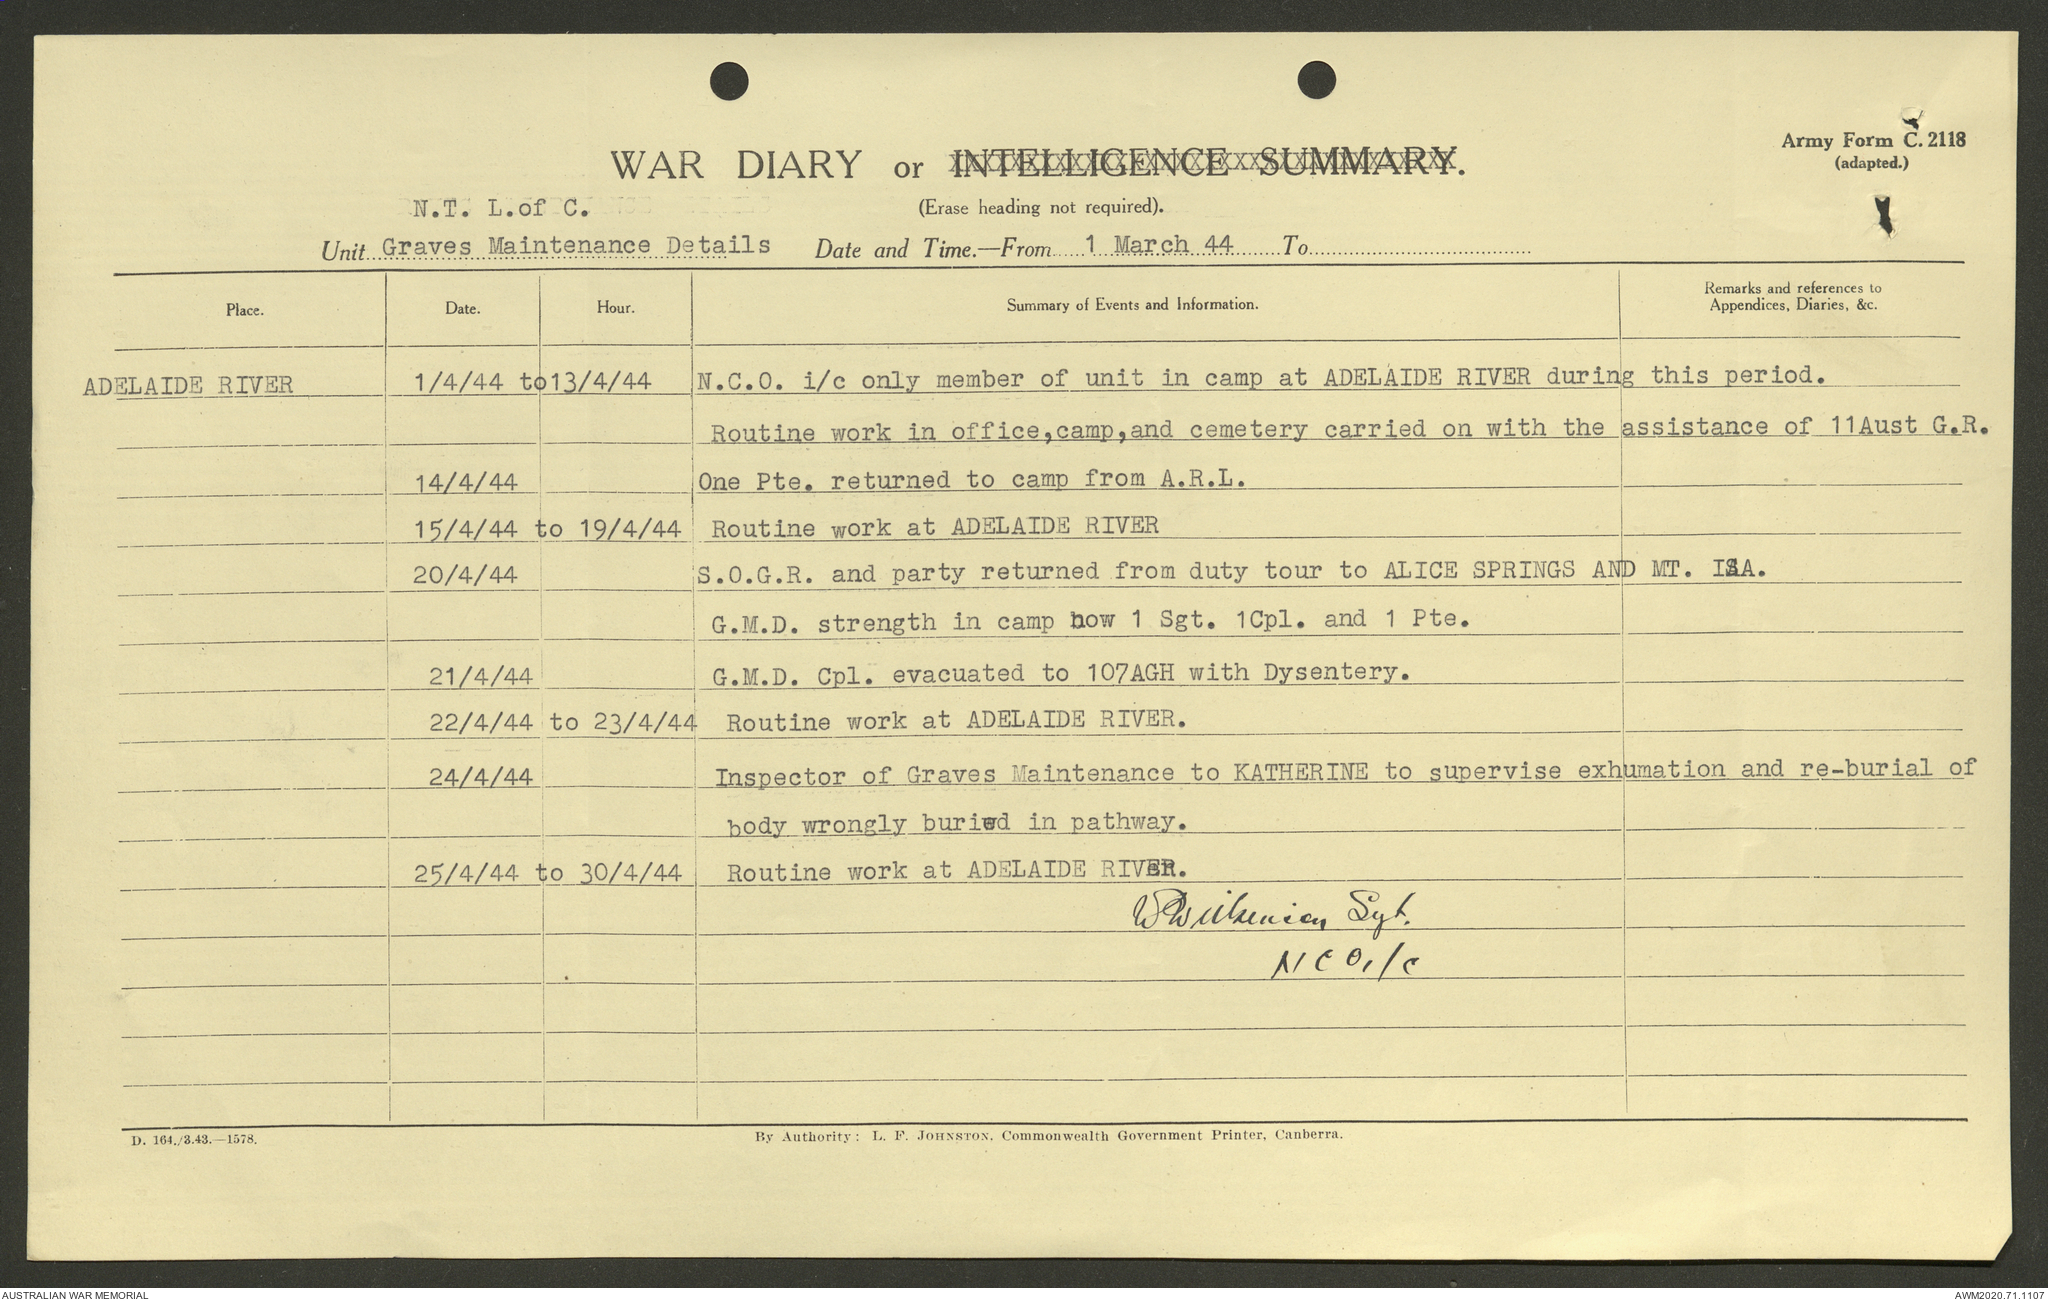 Army Form C. 2118
(adapted.)
WAR DIARY or INTELLIGENCE SUMMARY.
(Erase heading not required).
N.T. L.of C.
Unit Graves Maintenance Details Date and Time.—From 1 March 44 To
Place. Date. Hour. Summary of Events and Information. Remarks and references to Appendices, Diaries, &c.
ADELAIDE RIVER 1/4/44 to 13/4/44 N.C.O. i/c only member of unit in camp at ADELAIDE RIVER during this period.
Routine work in office,camp,and cemetery carried on with the assistance of 11Aust G.R.
14/4/44 One Pte. returned to camp from A.R.L.
15/4/44 to 19/4/44 Routine work at ADELAIDE RIVER
20/4/44 S.O.G.R. and party returned from duty tour to ALICE SPRINGS AND MT. ISA.
G.M.D. strength in camp now 1 Sgt. 1Cpl. and 1 Pte.
21/4/44 G.M.D. Cpl. evacuated to 107AGH with Dysentery.
22/4/44 to 23/4/44 Routine work at ADELAIDE RIVER.
24/4/44 Inspector of Graves Maintenance to KATHERINE to supervise exhumation and re-burial of
body wrongly buried in pathway.
25/4/44 to 30/4/44 Routine work at ADELAIDE RIVER.
Sgt.
NCO i/c
D. 164./3.43.—1578. By Authority: L. F. JOHNSTON, Commonwealth Government Printer, Canberra.
AUSTRALIAN WAR MEMORIAL AWM2020.71.1107